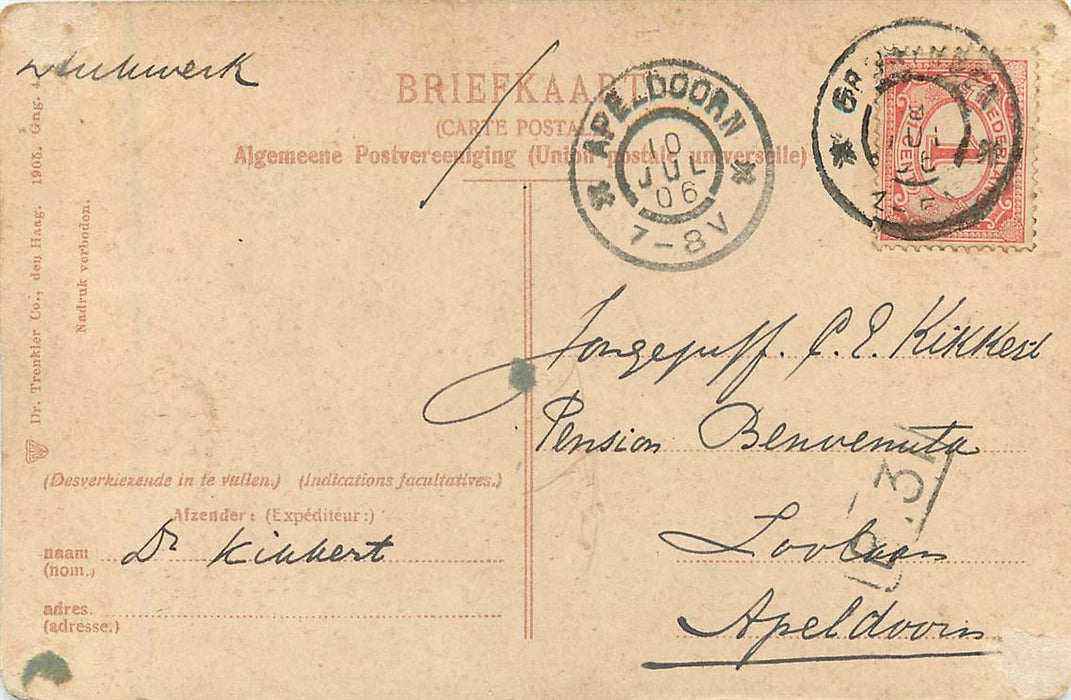 Drukwerk
BRIEFKAART
(CARTE POSTALE)
Algemeene Postvereeniging (Union postale universelle)
APELDOORN
10
JUL
06
7-8V
GRONINGEN
NEDERLAND
1
CENT
Dr. Trenkler Co., den Haag. 1905. Gng. 4
Nadruk verboden.
Jongejuff. C. E. Kikkert
Pension Benvenuta
Loolaan
Apeldoorn
(Desverkiezende in te vullen.) (Indications facultatives.)
Afzender: (Expéditeur:)
naam Dr Kikkert
(nom.)
adres.
(adresse.)